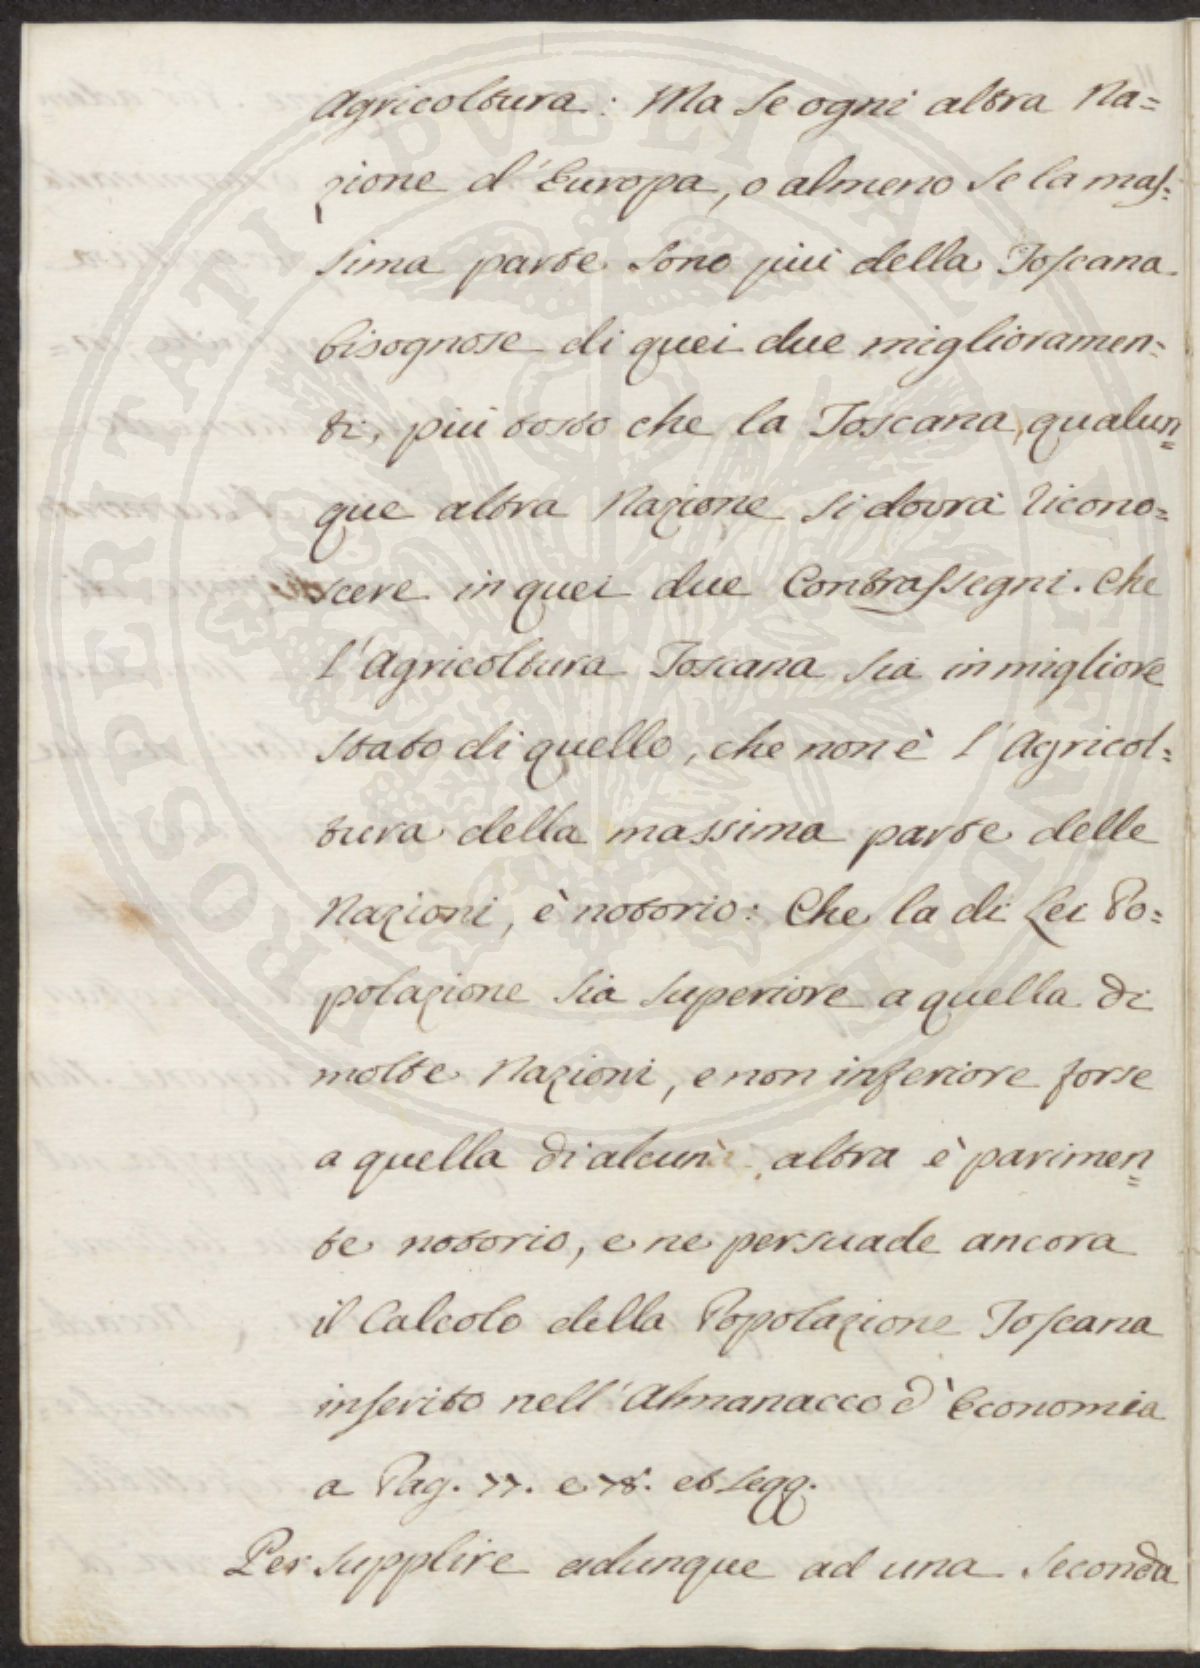 Agricoltura: Ma se ogni altra Na=
zione d'Europa, o almeno se la mas=
sima parte sono più della Toscana
bisognose di quei due miglioramen=
ti, più tosto che la Toscana, qualun=
que altra Nazione si dovrà ricono=
scere in quei due Contrassegni. Che
l'Agricoltura Toscana sia in migliore
stato di quello, che non è l'Agricol=
tura della massima parte delle
Nazioni, è notorio: Che la di Lei Po=
polazione sia superiore a quella di
molte Nazioni, e non inferiore forse
a quella di alcun altra è parimen=
te notorio, e ne persuade ancora
il Calcolo della Popolazione Toscana
inserito nell'Almanacco d'Economia
a Pag. 77. e 78. et segg.
Per supplire adunque ad una seconda
PROSPERITATI PUBLICAE AUGENDAE